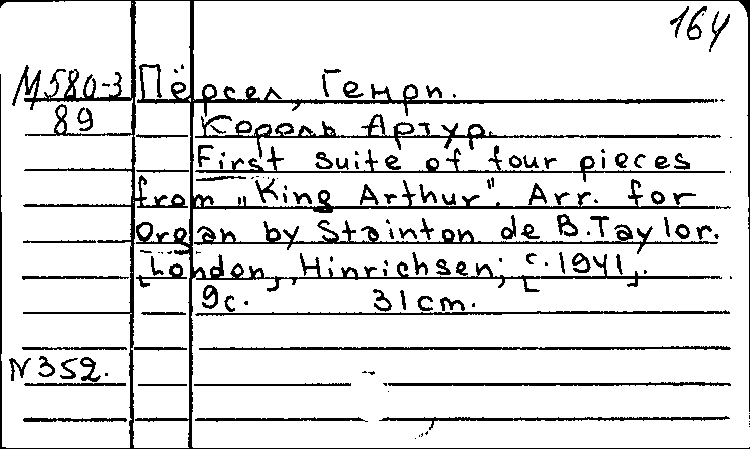 164
М580-3 Пёрсел, Генри.
89 Король Артур.
First suite of four pieces
from „King Arthur". Arr. for
Organ by Stainton de B. Taylor.
[London], Hinrichsen; [c. 1941].
9с. 31cm.
N352.